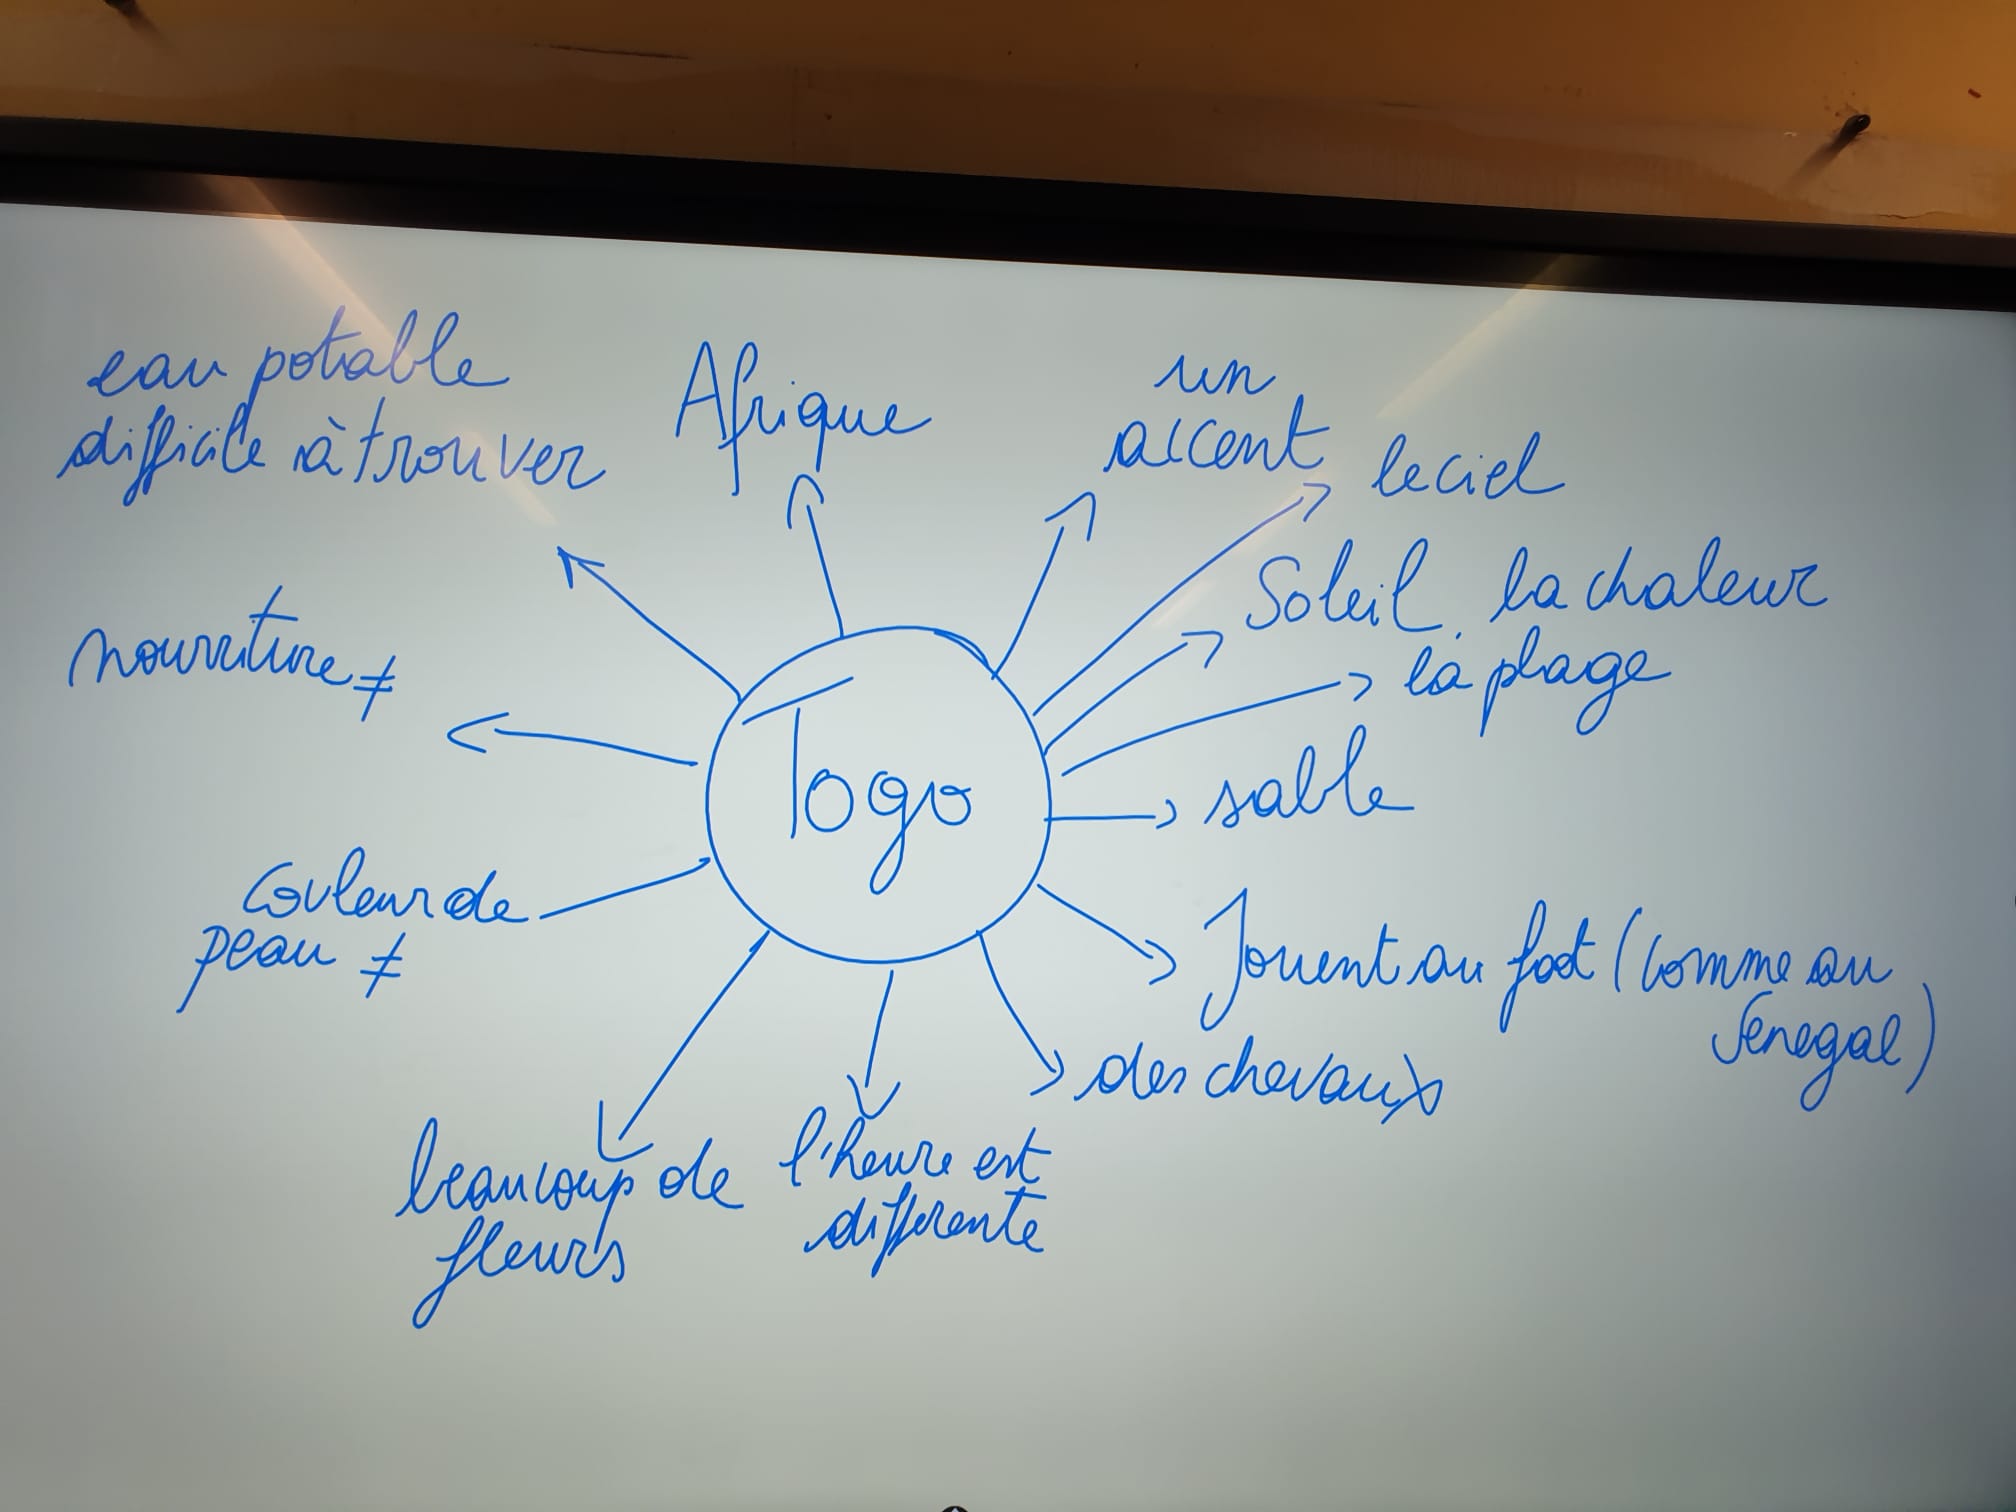 eau potable
difficile à trouver
Afrique
un
accent
le ciel
Soleil, la chaleur
la plage
nourriture ≠
Togo
sable
couleur de
peau ≠
Jouent au foot (comme au
Sénegal)
des chevaux
beaucoup de
fleurs
l'heure est
différente